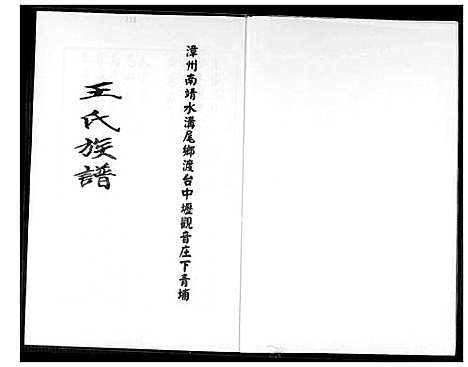 漳州南靖水溝尾鄉渡台中壢觀音庄下青埔
王氏族譜